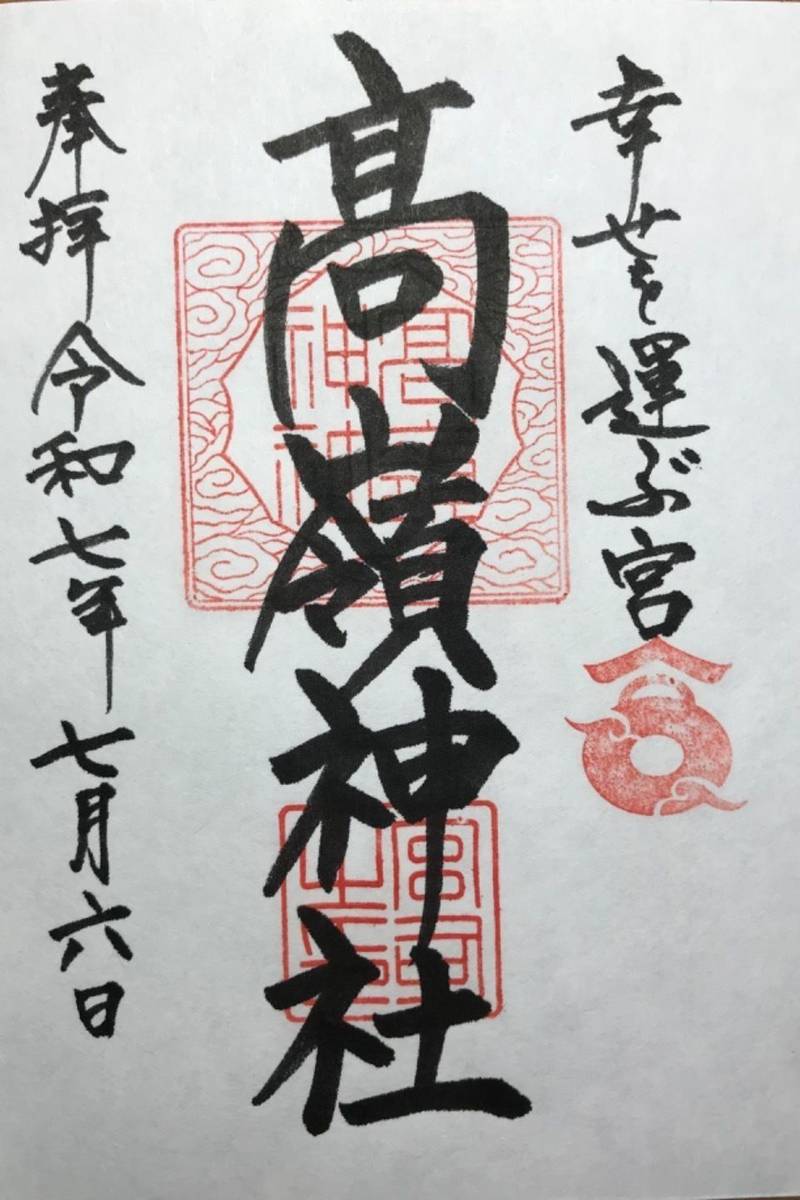 幸せを運ぶ宮
高嶺神社
奉拝 令和七年 七月六日